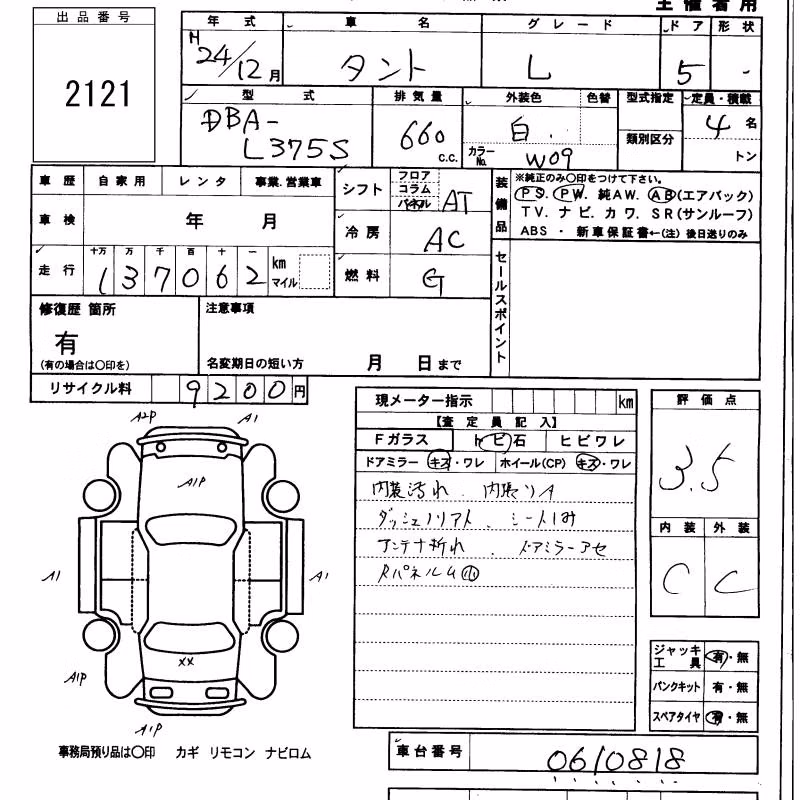 主催者用
出品番号
2121
年式 車名 グレード ドア 形状
H24/12月 タント L 5 -
型式 排気量 外装色 色替 型式指定 定員・積載
DBA-L375S 660 c.c. 白 カラーNo. W09 類別区分 4名 トン
車歴 自家用 レンタ 事業.営業車
車検 年 月
走行 十万 万 千 百 十 一
137062 km マイル
シフト フロア コラム パネル AT
冷房 AC
燃料 G
装備品
※純正のみ○印をつけて下さい。
PS. PW. 純AW. AB(エアバック)
TV. ナビ. カワ. SR(サンルーフ)
ABS ・ 新車保証書←(注) 後日送りのみ
セールスポイント
修復歴 箇所
有
(有の場合は○印を)
注意事項
名変期日の短い方 月 日まで
リサイクル料 9200円
現メーター指示 km
【査定員記入】
Fガラス トビ石 ヒビワレ
ドアミラー キズ・ワレ ホイール(CP) キズ・ワレ
内装汚れ 内張リA
シート
アンテナ折れ ドアミラーアセ
評価点
3.5
内装 外装
C C
ジャッキ工具 有・無
パンクキット 有・無
スペアタイヤ 有・無
A2P A1
A1P
A1 A1
XX
A1P
A1P
事務局預り品は○印 カギ リモコン ナビロム
車台番号 0610818